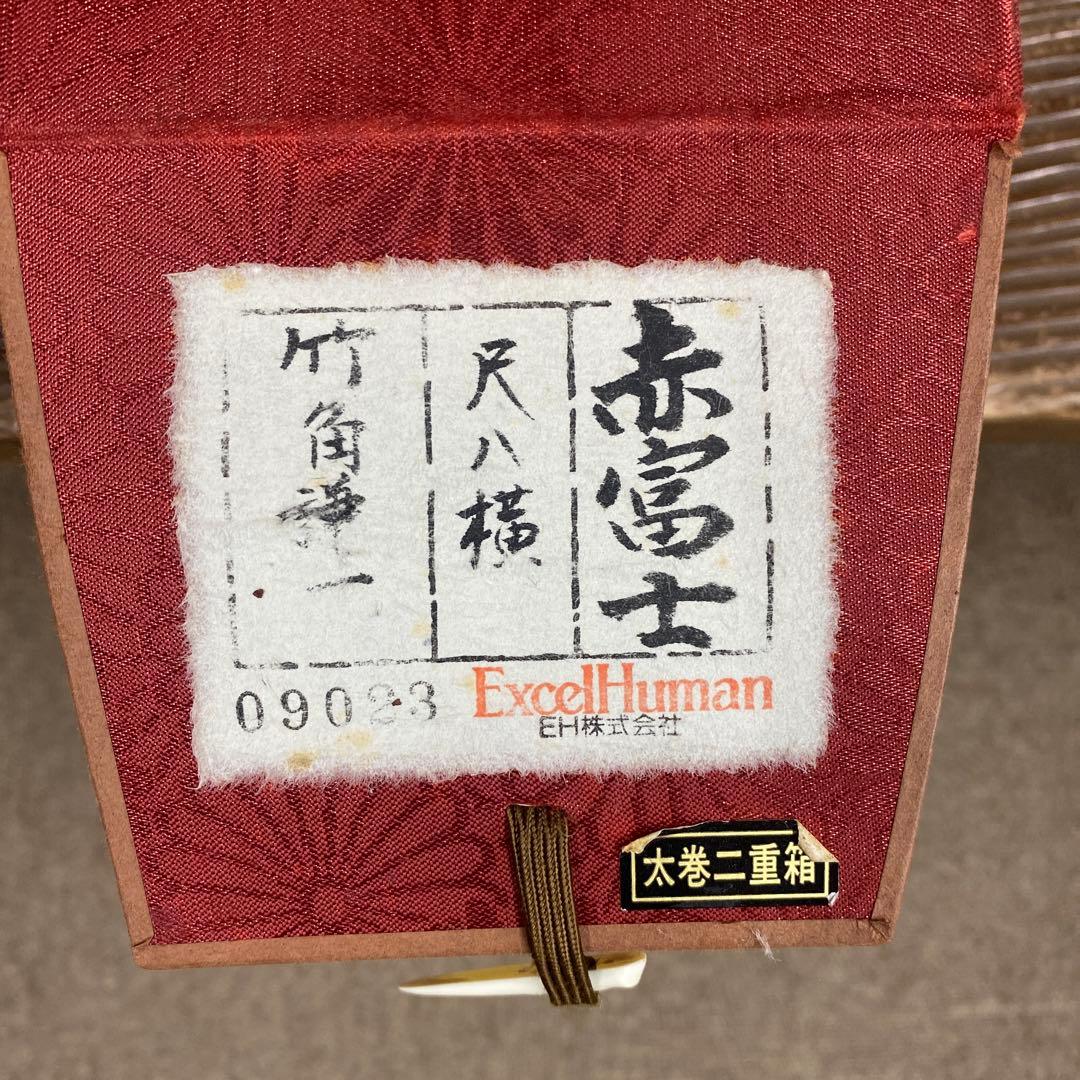 赤富士
尺八横
竹角謙一
09023
ExcelHuman
EH株式会社
太巻二重箱